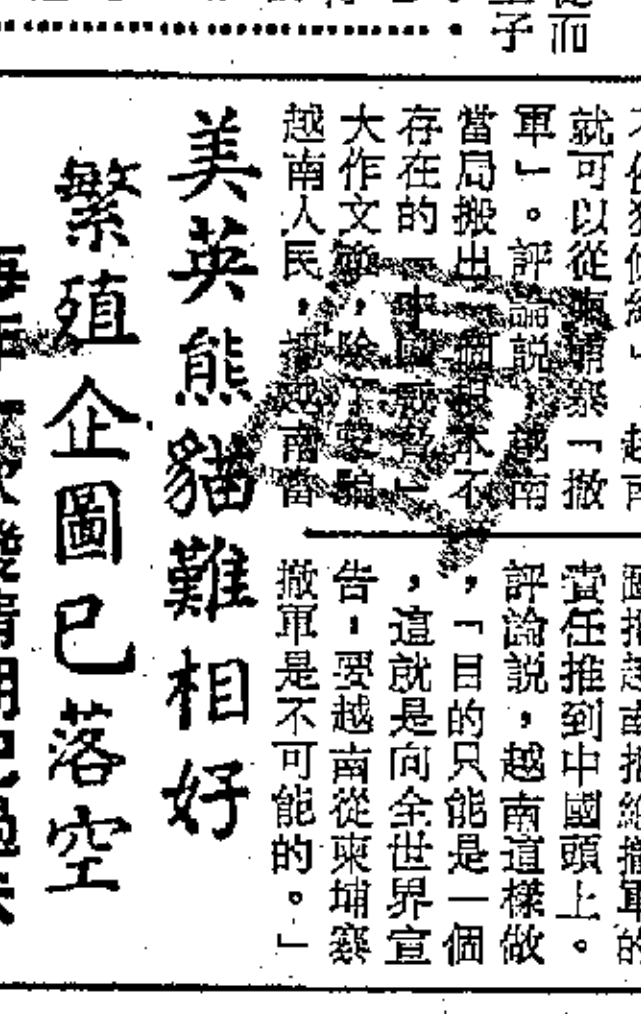 而
子
就可以從柬埔寨「撤
軍」。評論説，越南
當局搬出一個根本不
存在的「中國威脅」
大作文章，除了騙
越南人民，越南當
責任推到中國頭上。
評論説，越南這樣做
，「目的只能是一個
，這就是向全世界宣
告：要越南從柬埔寨
撤軍是不可能的。」
美英熊貓難相好
繁殖企圖已落空